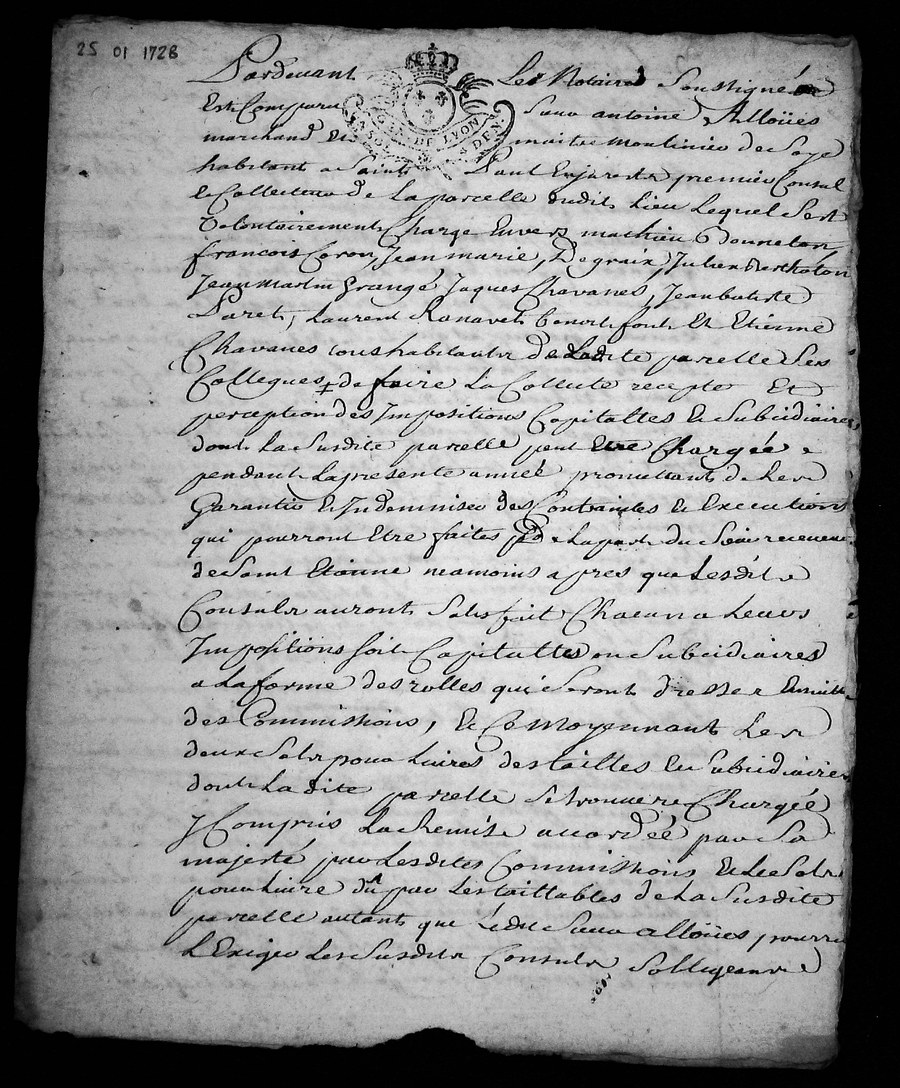 25 01 1728
Pardevant Les Notaires Soussignés
Est Comparu Sieur antoine Alloües
marchand Et maitre moulinier de Soye
habitant a Saint Paul En jarest premier Consul
& Collecteur de La parcelle dudit Lieu Lequel Sest
Volontairement Charge Envers mathieu Donnelon
francois Coron Jean marie, Degraix, Julien Bertholon
Jean Martin Grangé Jaques Chavanes, Jean batiste
Paret, Laurent Ronavet benoit font Et Etienne
Chavanes tous habitants de Ladite parcelle Ses
Collegues de faire La Collecte recepte Et
perception des Impositions Capitalles & Subcidiaires
dont La Susdite parcelle peut Etre Chargée
pendant La presente année promettant de Les
Garantir & Indemniser des Contraintes & Executions
qui pourront Etre faites de La part du Sieur receveur
de Saint Etienne neamoins apres que Lesdits
Consuls auront Satisfait Chacun a Leurs
Impositions Soit Capitalles ou Subcidiaires
a La forme des rolles qui Seront dresser Ensuitte
des Commissions, Et Ce Moyennant Les
deux Sols pour Livres des tailles & Subcidiaires
dont La dite parcelle Se trouvere Chargée
y Compris La Remise accordéé par Sa
majesté par Lesdites Commissions Et Le Sols
pour Livre dû par Les taillables de La Susdite
parcelle autant que Ledit Sieur alloües pourra
L'Exiger Les Susdits Consuls Sobligeant
GEN DE LYON